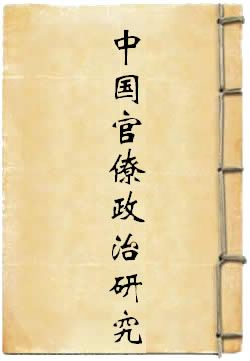 中国官僚政治研究